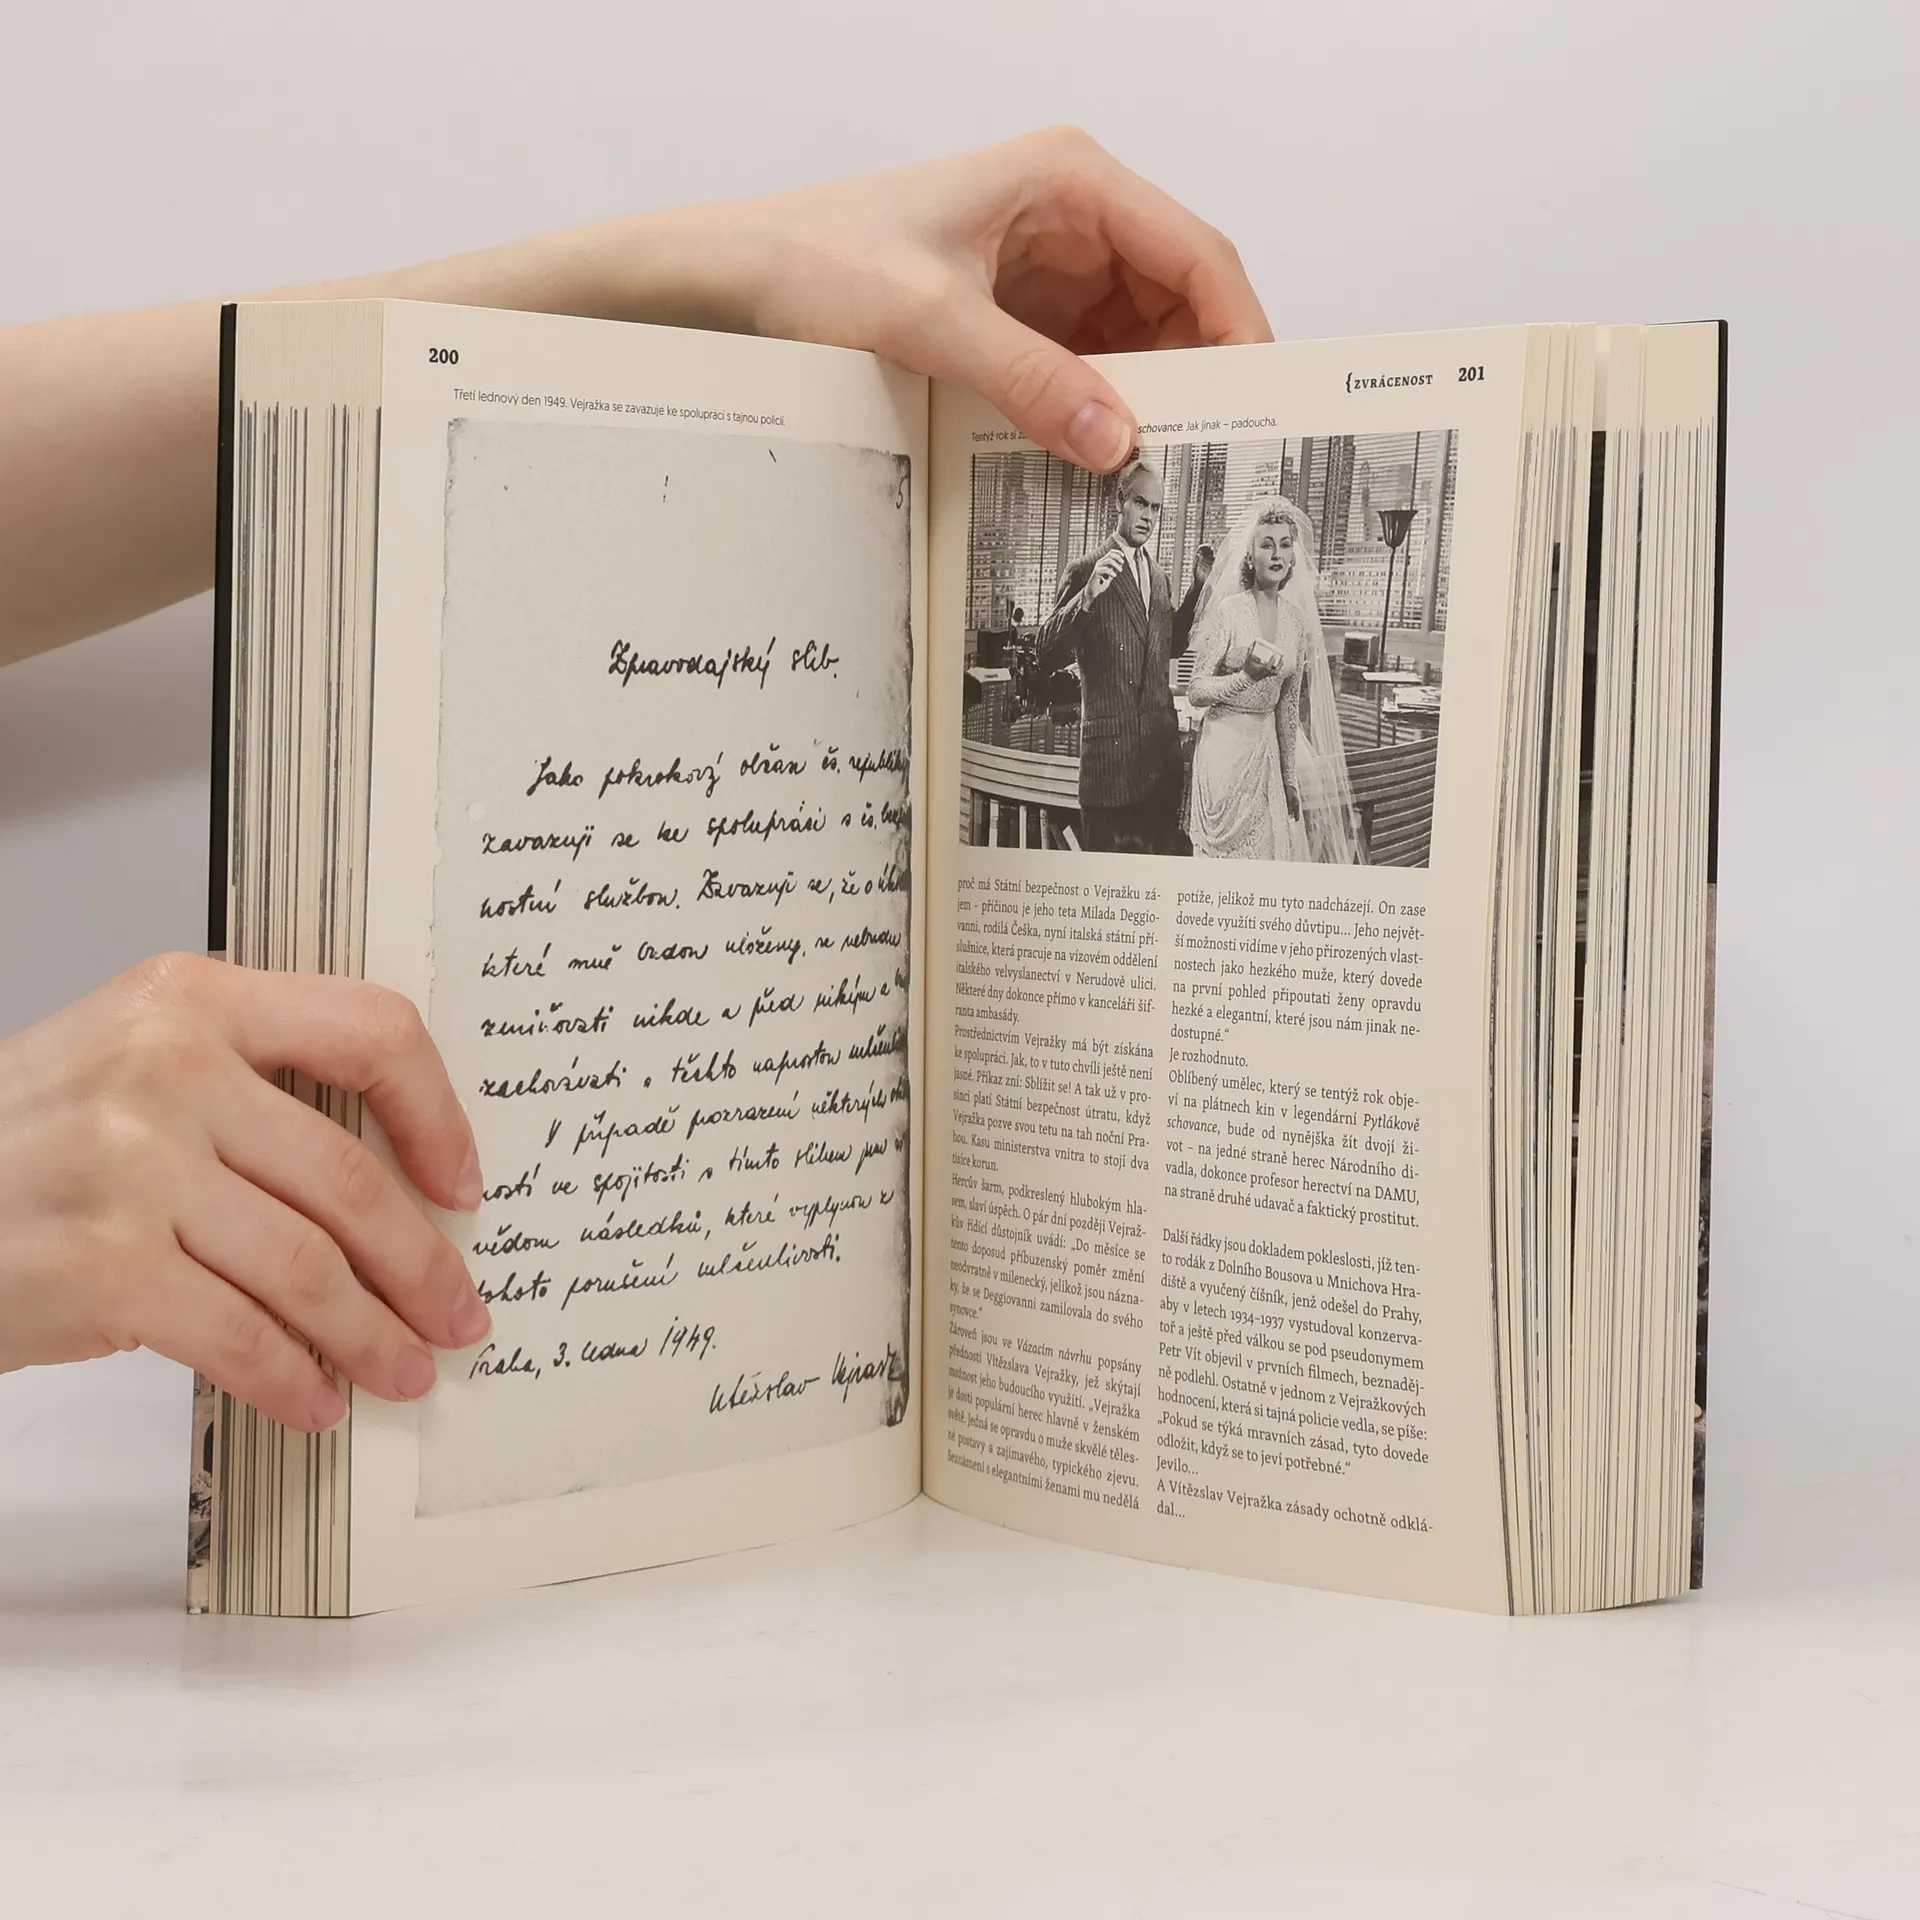 200
Třetí lednový den 1949. Vejražka se zavazuje ke spolupráci s tajnou policií.
5
Zpravodajský slib.
Jako pokrokový občan čs. republiky
zavazuji se ke spolupráci s čs. bezp
nostní službou. Zavazuji se, že o úko
které mně budou uloženy, se nebudu
zmiňovati nikde a před nikým a bu
zachovávati o těchto naprostou mlčenli
V případě prozrazení některých sku
ností ve spojitosti s tímto slibem jsem si
vědom následků, které vyplynou z
tohoto porušení mlčenlivosti.
Praha, 3. ledna 1949.
Vítězslav Vejražk
{ZVRÁCENOST 201
Tentýž rok si za schovance. Jak jinak – padoucha.
proč má Státní bezpečnost o Vejražku zá-
jem - příčinou je jeho teta Milada Deggio-
vanni, rodilá Češka, nyní italská státní pří-
slušnice, která pracuje na vízovém oddělení
italského velvyslanectví v Nerudově ulici.
Některé dny dokonce přímo v kanceláři šif-
ranta ambasády.
Prostřednictvím Vejražky má být získána
ke spolupráci. Jak, to v tuto chvíli ještě není
jasné. Příkaz zní: Sblížit se! A tak už v pro-
sinci platí Státní bezpečnost útratu, když
Vejražka pozve svou tetu na tah noční Pra-
hou. Kasu ministerstva vnitra to stojí dva
tisíce korun.
Hercův šarm, podkreslený hlubokým hla-
sem, slaví úspěch. O pár dní později Vejraž-
kův řídící důstojník uvádí: „Do měsíce se
tento doposud příbuzenský poměr změní
neodvratně v milenecký, jelikož jsou názna-
ky, že se Deggiovanni zamilovala do svého
synovce."
Zároveň jsou ve Vázacím návrhu popsány
přednosti Vítězslava Vejražky, jež skýtají
možnost jeho budoucího využití. „Vejražka
je dosti populární herec hlavně v ženském
světě. Jedná se opravdu o muže skvělé těles-
né postavy a zajímavého, typického zjevu.
Seznámení s elegantními ženami mu nedělá
potíže, jelikož mu tyto nadcházejí. On zase
dovede využíti svého důvtipu... Jeho největ-
ší možnosti vidíme v jeho přirozených vlast-
nostech jako hezkého muže, který dovede
na první pohled připoutati ženy opravdu
hezké a elegantní, které jsou nám jinak ne-
dostupné."
Je rozhodnuto.
Oblíbený umělec, který se tentýž rok obje-
ví na plátnech kin v legendární Pytlákově
schovance, bude od nynějška žít dvojí ži-
vot - na jedné straně herec Národního di-
vadla, dokonce profesor herectví na DAMU,
na straně druhé udavač a faktický prostitut.
Další řádky jsou dokladem pokleslosti, jíž ten-
to rodák z Dolního Bousova u Mnichova Hra-
diště a vyučený číšník, jenž odešel do Prahy,
aby v letech 1934-1937 vystudoval konzerva-
toř a ještě před válkou se pod pseudonymem
Petr Vít objevil v prvních filmech, beznaděj-
ně podlehl. Ostatně v jednom z Vejražkových
hodnocení, která si tajná policie vedla, se píše:
„Pokud se týká mravních zásad, tyto dovede
odložit, když se to jeví potřebné."
Jevilo...
A Vítězslav Vejražka zásady ochotně odklá-
dal...